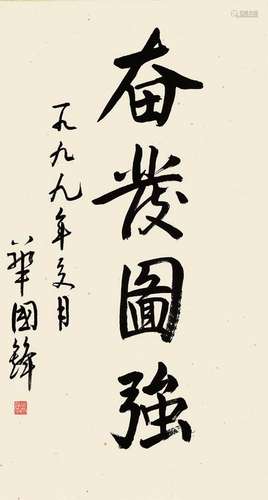 奋發圖強
一九九九年文月
華國鋒